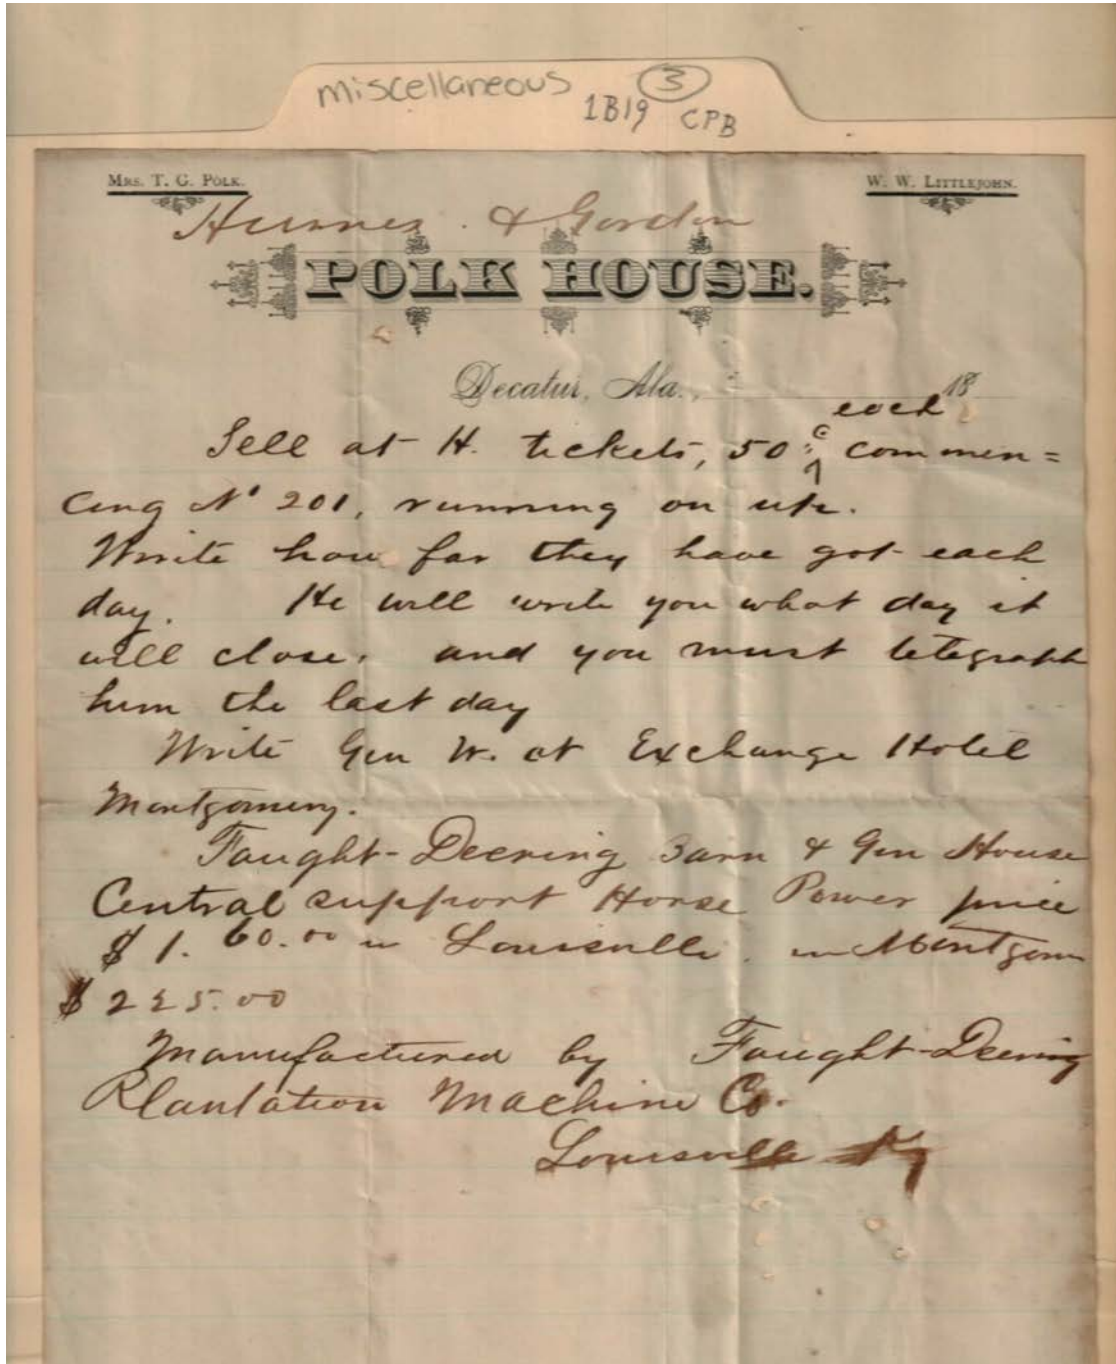 miscellaneous 3
1B19 CPB
MRS. T. G. POLK. W. W. LITTLEJOHN.
& Gordon
POLK HOUSE.
Decatur, Ala., 18
each
Sell at H. tickets, 50 c commen=
cing No 201, running on up.
Write how far they have got each
day. He will write you what day it
will close. and you must telegraph
him the last day
Write Gen W. at Exchange Hotel
Montgomery.
Faught-Deering Barn & Gin House
Central support Horse Power price
$ 1. 60.00 in Louisville. in Montgom
$ 225.00
Manufactured by Faught-Deering
Plantation Machine Co.
Louisville Ky